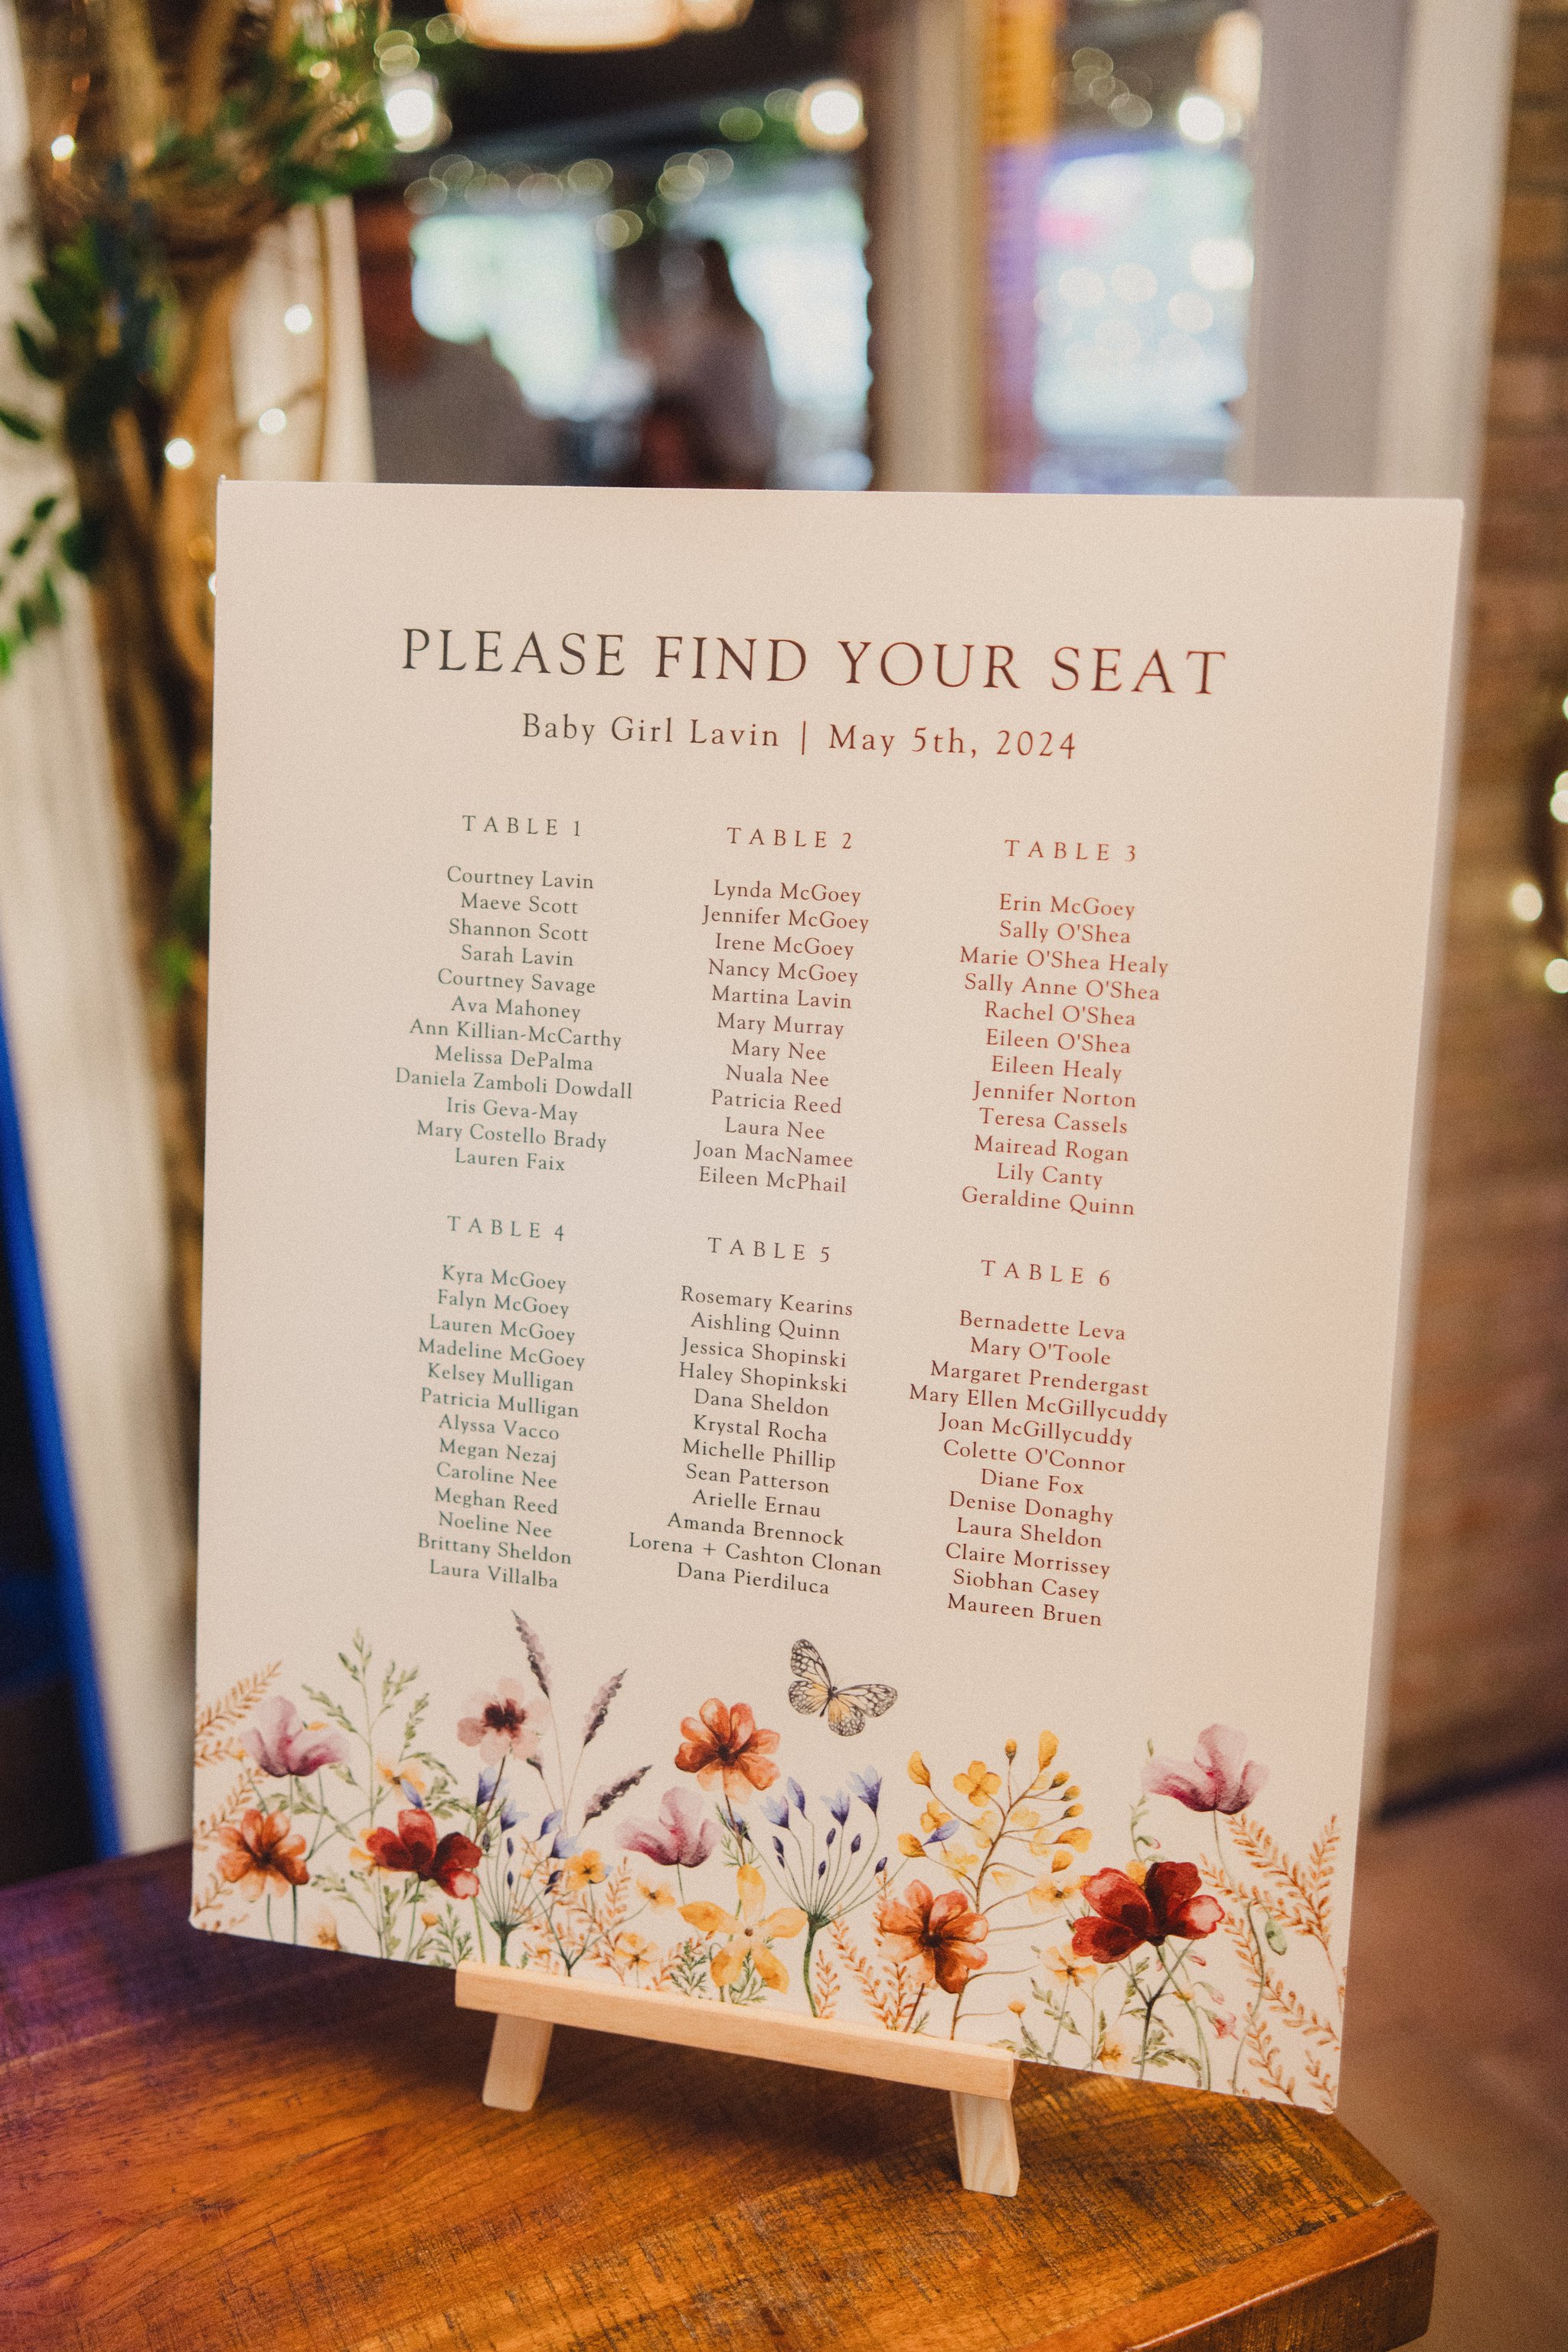 PLEASE FIND YOUR SEAT
Baby Girl Lavin | May 5th, 2024
TABLE 1
Courtney Lavin
Maeve Scott
Shannon Scott
Sarah Lavin
Courtney Savage
Ava Mahoney
Ann Killian-McCarthy
Melissa DePalma
Daniela Zamboli Dowdall
Iris Geva-May
Mary Costello Brady
Lauren Faix
TABLE 2
Lynda McGoey
Jennifer McGoey
Irene McGoey
Nancy McGoey
Martina Lavin
Mary Murray
Mary Nee
Nuala Nee
Patricia Reed
Laura Nee
Joan MacNamee
Eileen McPhail
TABLE 3
Erin McGoey
Sally O'Shea
Marie O'Shea Healy
Sally Anne O'Shea
Rachel O'Shea
Eileen O'Shea
Eileen Healy
Jennifer Norton
Teresa Cassels
Mairead Rogan
Lily Canty
Geraldine Quinn
TABLE 4
Kyra McGoey
Falyn McGoey
Lauren McGoey
Madeline McGoey
Kelsey Mulligan
Patricia Mulligan
Alyssa Vacco
Megan Nezaj
Caroline Nee
Meghan Reed
Noeline Nee
Brittany Sheldon
Laura Villalba
TABLE 5
Rosemary Kearins
Aishling Quinn
Jessica Shopinski
Haley Shopinkski
Dana Sheldon
Krystal Rocha
Michelle Phillip
Sean Patterson
Arielle Ernau
Amanda Brennock
Lorena + Cashton Clonan
Dana Pierdiluca
TABLE 6
Bernadette Leva
Mary O'Toole
Margaret Prendergast
Mary Ellen McGillycuddy
Joan McGillycuddy
Colette O'Connor
Diane Fox
Denise Donaghy
Laura Sheldon
Claire Morrissey
Siobhan Casey
Maureen Bruen